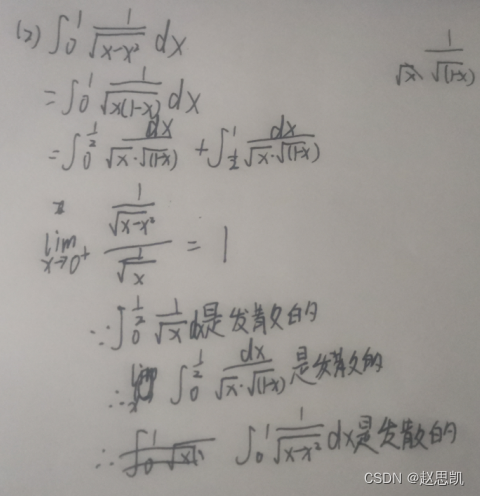 (2) ∫₀¹ 1/√(x-x²) dx
1/(√x · √(1-x))
= ∫₀¹ 1/√(x(1-x)) dx
= ∫₀^(1/2) dx/(√x·√(1-x)) + ∫_(1/2)¹ dx/(√x·√(1-x))
lim x→0⁺ (1/√(x-x²))/(1/√x) = 1
∵ ∫₀^(1/2) 1/√x dx是发散的
∴ ∫₀^(1/2) dx/(√x·√(1-x)) 是发散的
∴ ∫₀¹ 1/√(x-x²) dx是发散的
CSDN @赵思凯